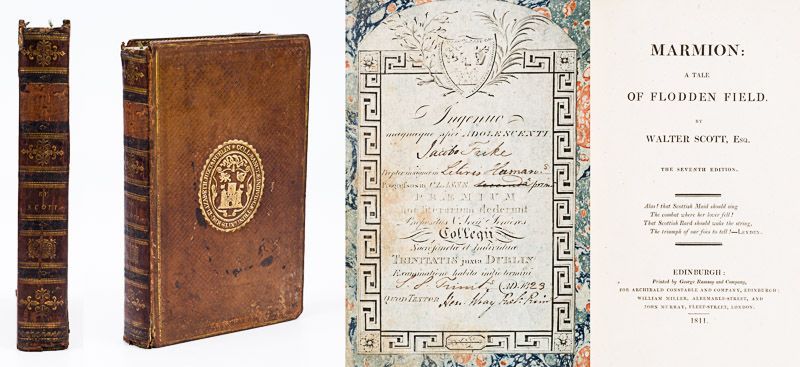 BY
SCOTT
Ingenuo
magnæque spei ADOLESCENTI
Jacobo
Propter insignem in Literis Humanis
Progressum in CLASSE prima
PRÆMIUM
hoc literarium dederunt
Præpositus & Socii Seniores
Collegii
Sacrosanctæ et Individuæ
TRINITATIS juxta DUBLIN
Examinatione habita initio termini
S. S. Trinit. AD. 1823
QUOD TESTOR Hen. Wray
MARMION:
A TALE
OF FLODDEN FIELD.
BY
WALTER SCOTT, ESQ.
THE SEVENTH EDITION.
Alas! that Scottish Maid should sing
The combat where her lover fell!
That Scottish Bard should wake the string,
The triumph of our foes to tell!—LEYDEN.
EDINBURGH:
Printed by George Ramsay and Company,
FOR ARCHIBALD CONSTABLE AND COMPANY, EDINBURGH;
WILLIAM MILLER, ALBEMARLE-STREET, AND
JOHN MURRAY, FLEET-STREET, LONDON.
1811.